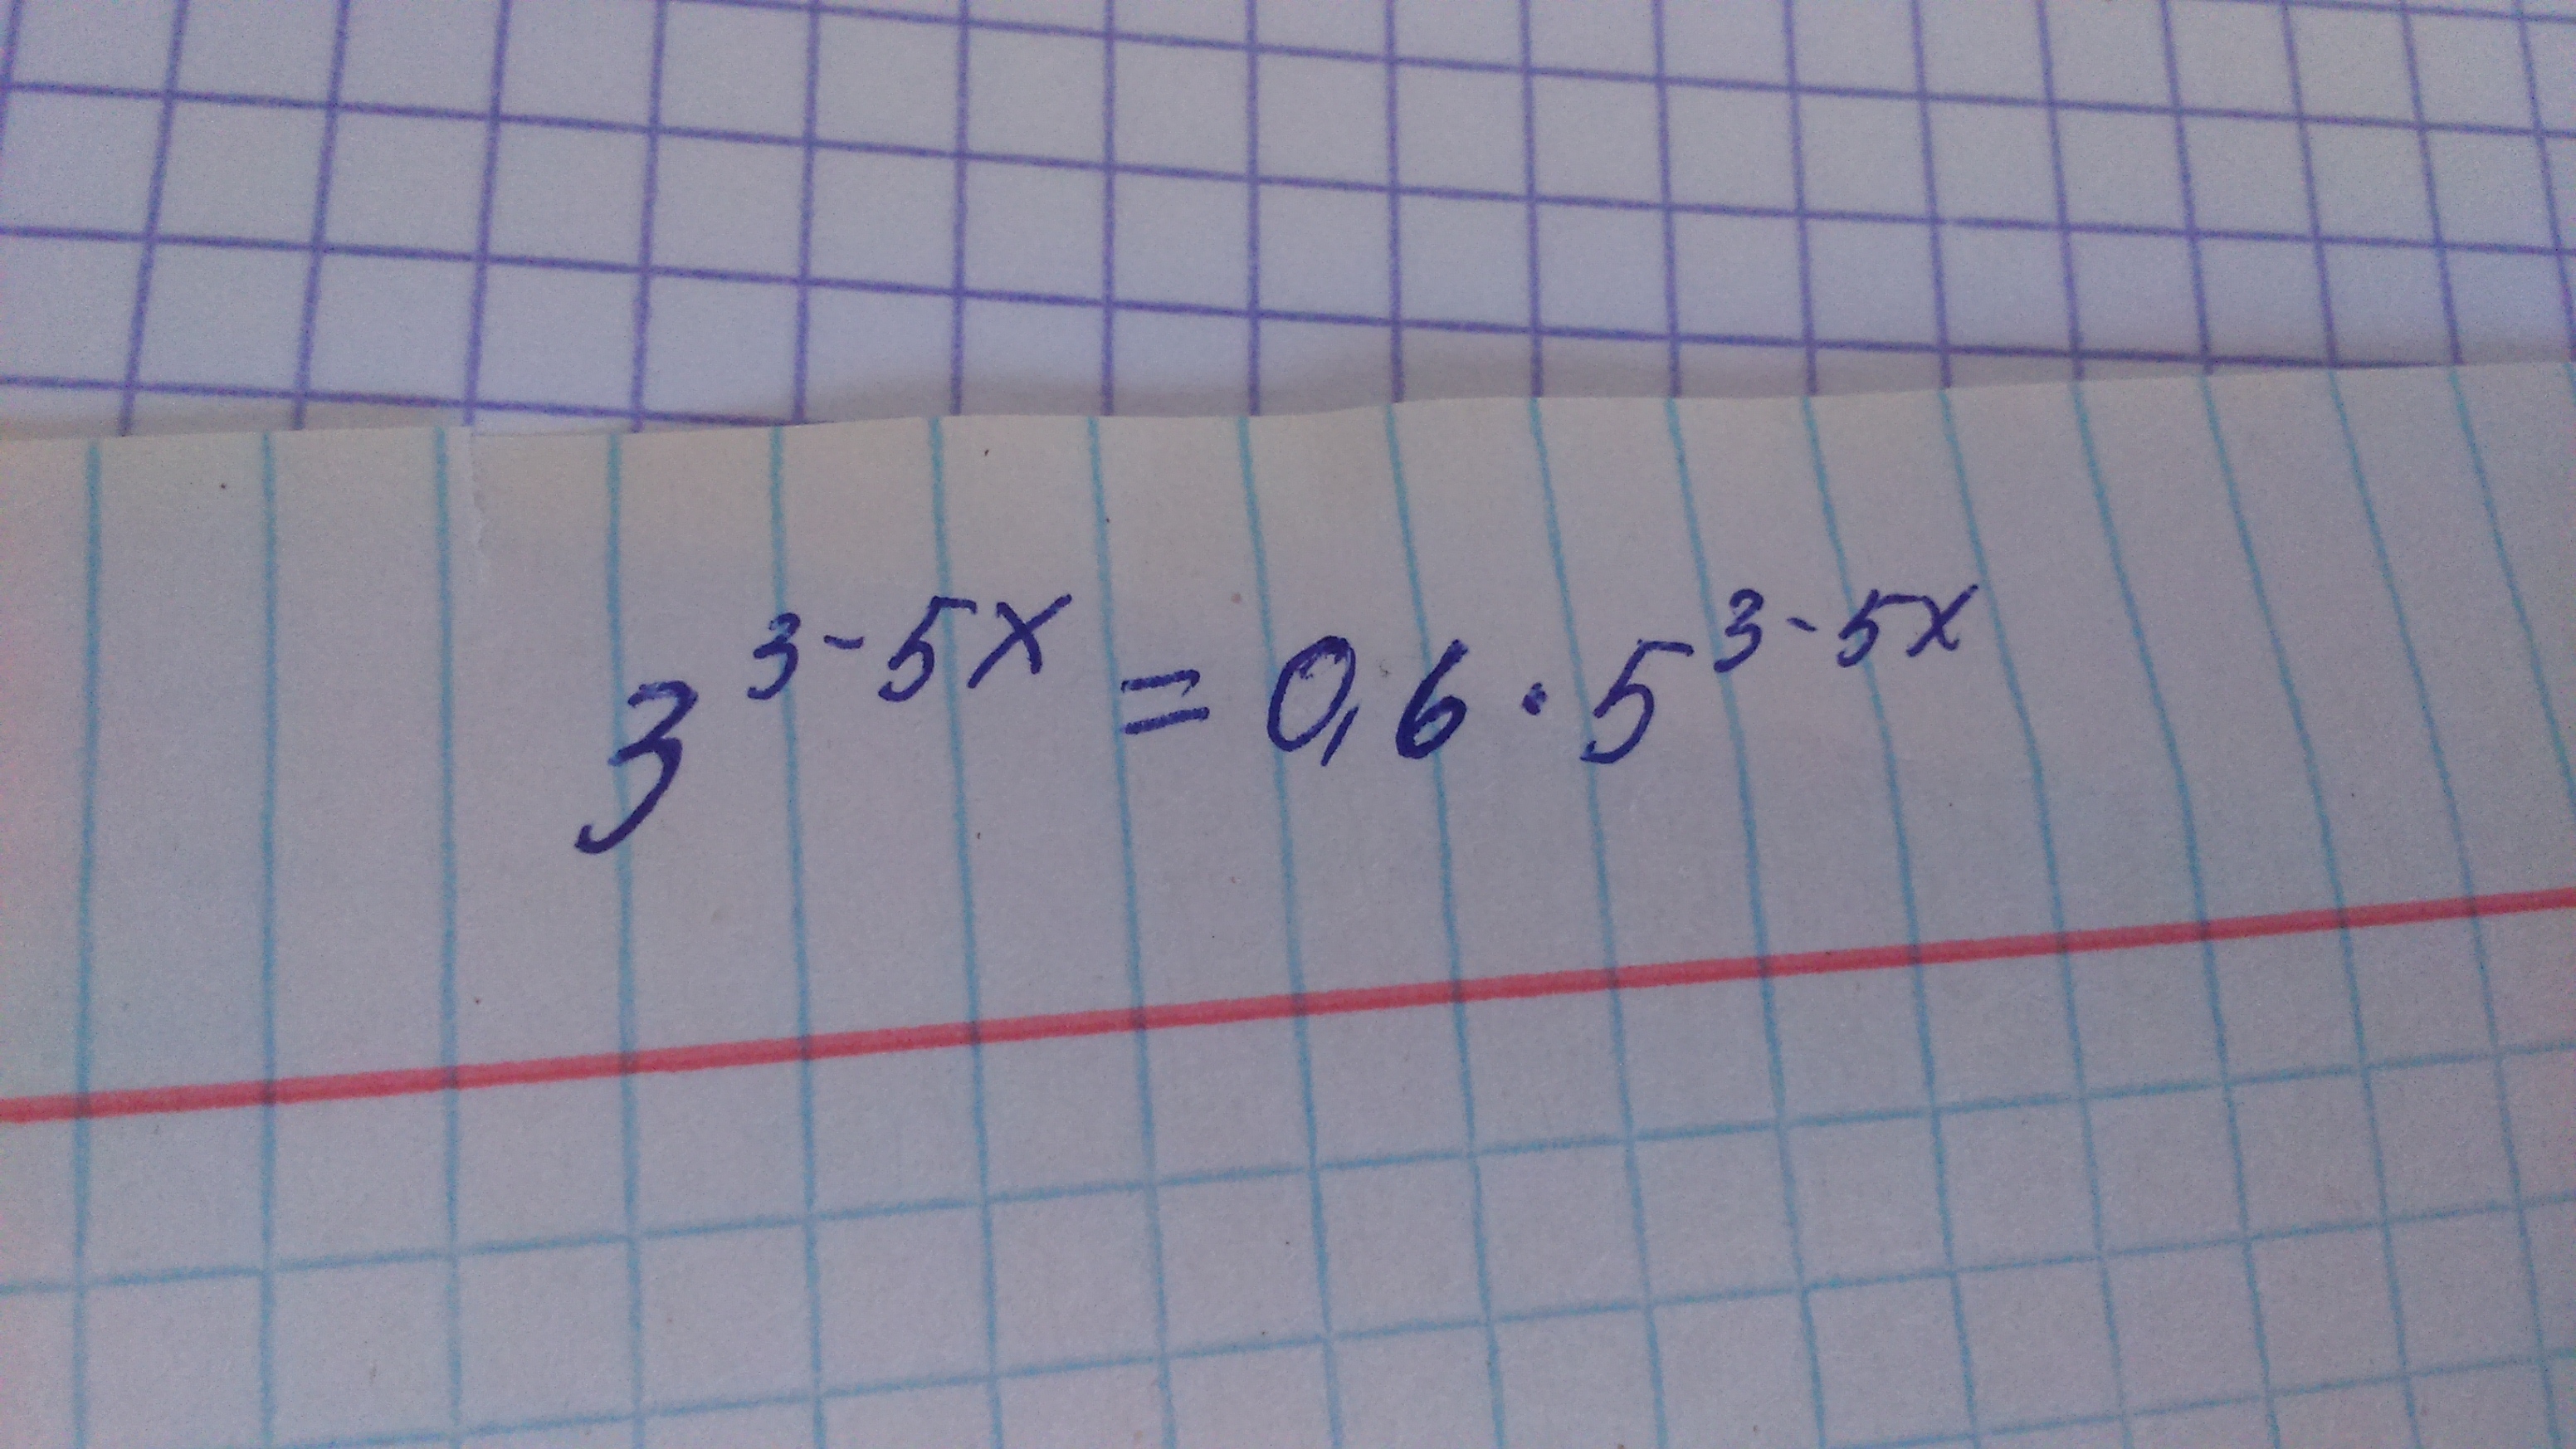 3^{3-5x} = 0,6 · 5^{3-5x}